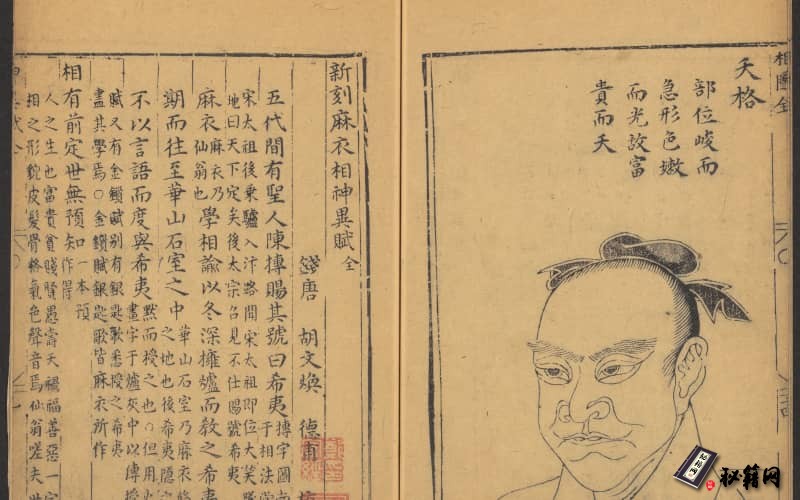 相圖全
夭格
部位峻而
急形色嫩
而光故富
貴而夭
新刻麻衣相神異賦全
錢唐 胡文煥 德甫
五代間有聖人陳摶賜其號曰希夷
摶字圖南
于相法
宋太祖後乗驢入汴路聞宋太祖即位大笑
地曰天下定矣後太宗召見不仕賜號希夷
麻衣
麻衣乃
仙翁也
學相諭以冬深擁爐而教之希夷
期而往至華山石室之中
華山石室乃麻衣修
之地也後希夷隱之
不以言語而度與希夷
默而授之也○但用火
畫字于爐灰中以傳授
賦又有金鎖賦別有銀匙歌悉授之希夷
盡其學焉○金鎖賦銀匙歌皆麻衣所作
相有前定世無預知
一本預
作得
人之生也富貴貧賤賢愚壽夭禍福善惡一定
相之形貌皮髮骨格氣色聲音焉仙翁嗟夫世
秘籍网